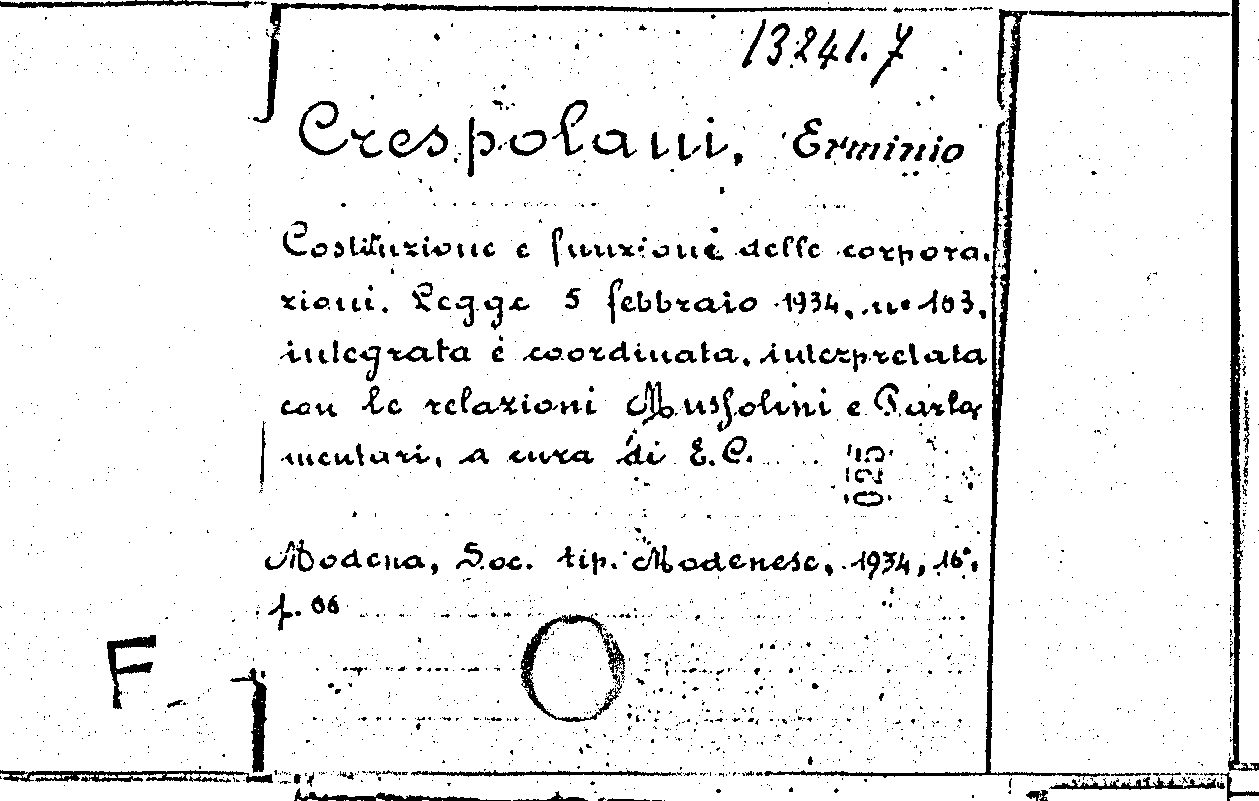 13241.7
Crespolani, Erminio
Costituzione e funzione delle corpora.
zioni. Legge 5 febbraio 1934, nº 163,
integrata e coordinata, interpretata
con le relazioni Mussolini e Parla
mentari, a cura di E.C.
025
Modena, Soc. tip. Modenese, 1934, 16°,
p. 66
F